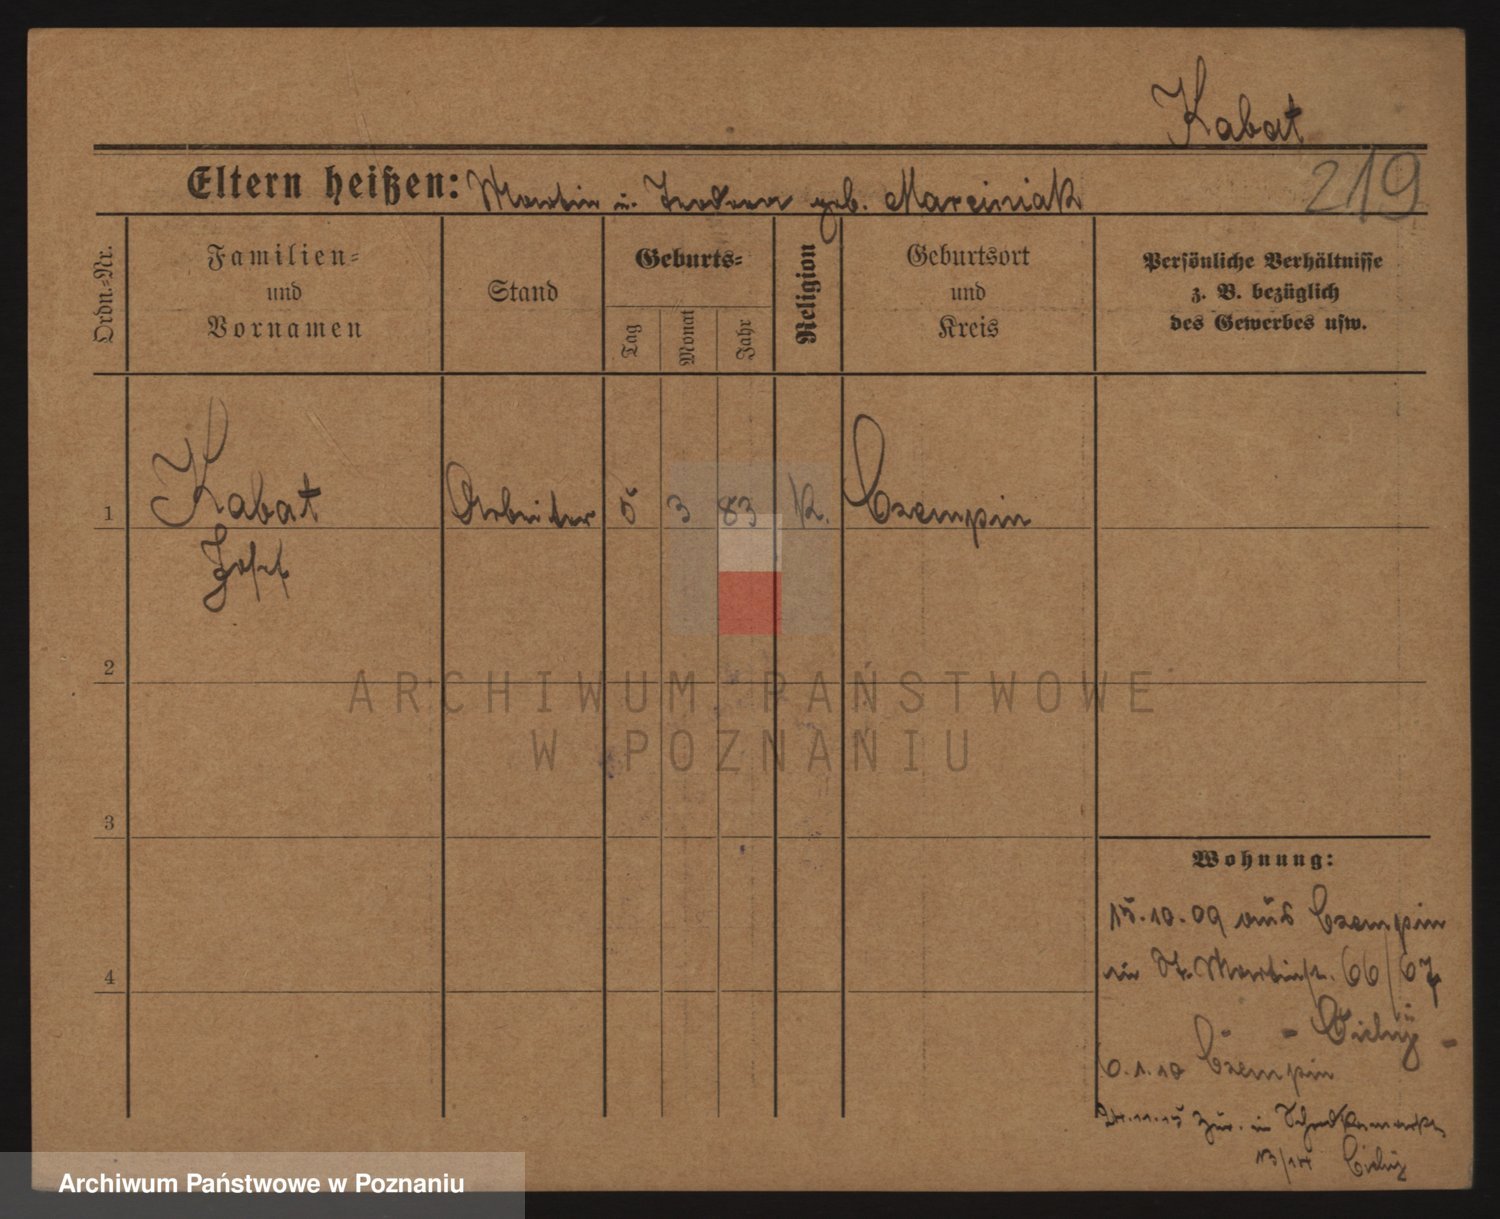 Kabat
219
Eltern heißen: Martin u. geb. Marciniak
Ordn.-Nr.
Familien-
und
Vornamen
Stand
Geburts-
Tag
Monat
Jahr
Religion
Geburtsort
und
Kreis
Persönliche Verhältnisse
z. B. bezüglich
des Gewerbes usw.
1 Kabat Arbeiter 5 3 83 K. Czempin
Josef
2
3
4
Wohnung:
15.10.09 aus Czempin
in St. Martinstr. 66/67
- Cichy -
6.1.10 Czempin
24.11.15 zur. in
13/14 Cichy
ARCHIWUM PAŃSTWOWE
W POZNANIU
Archiwum Państwowe w Poznaniu